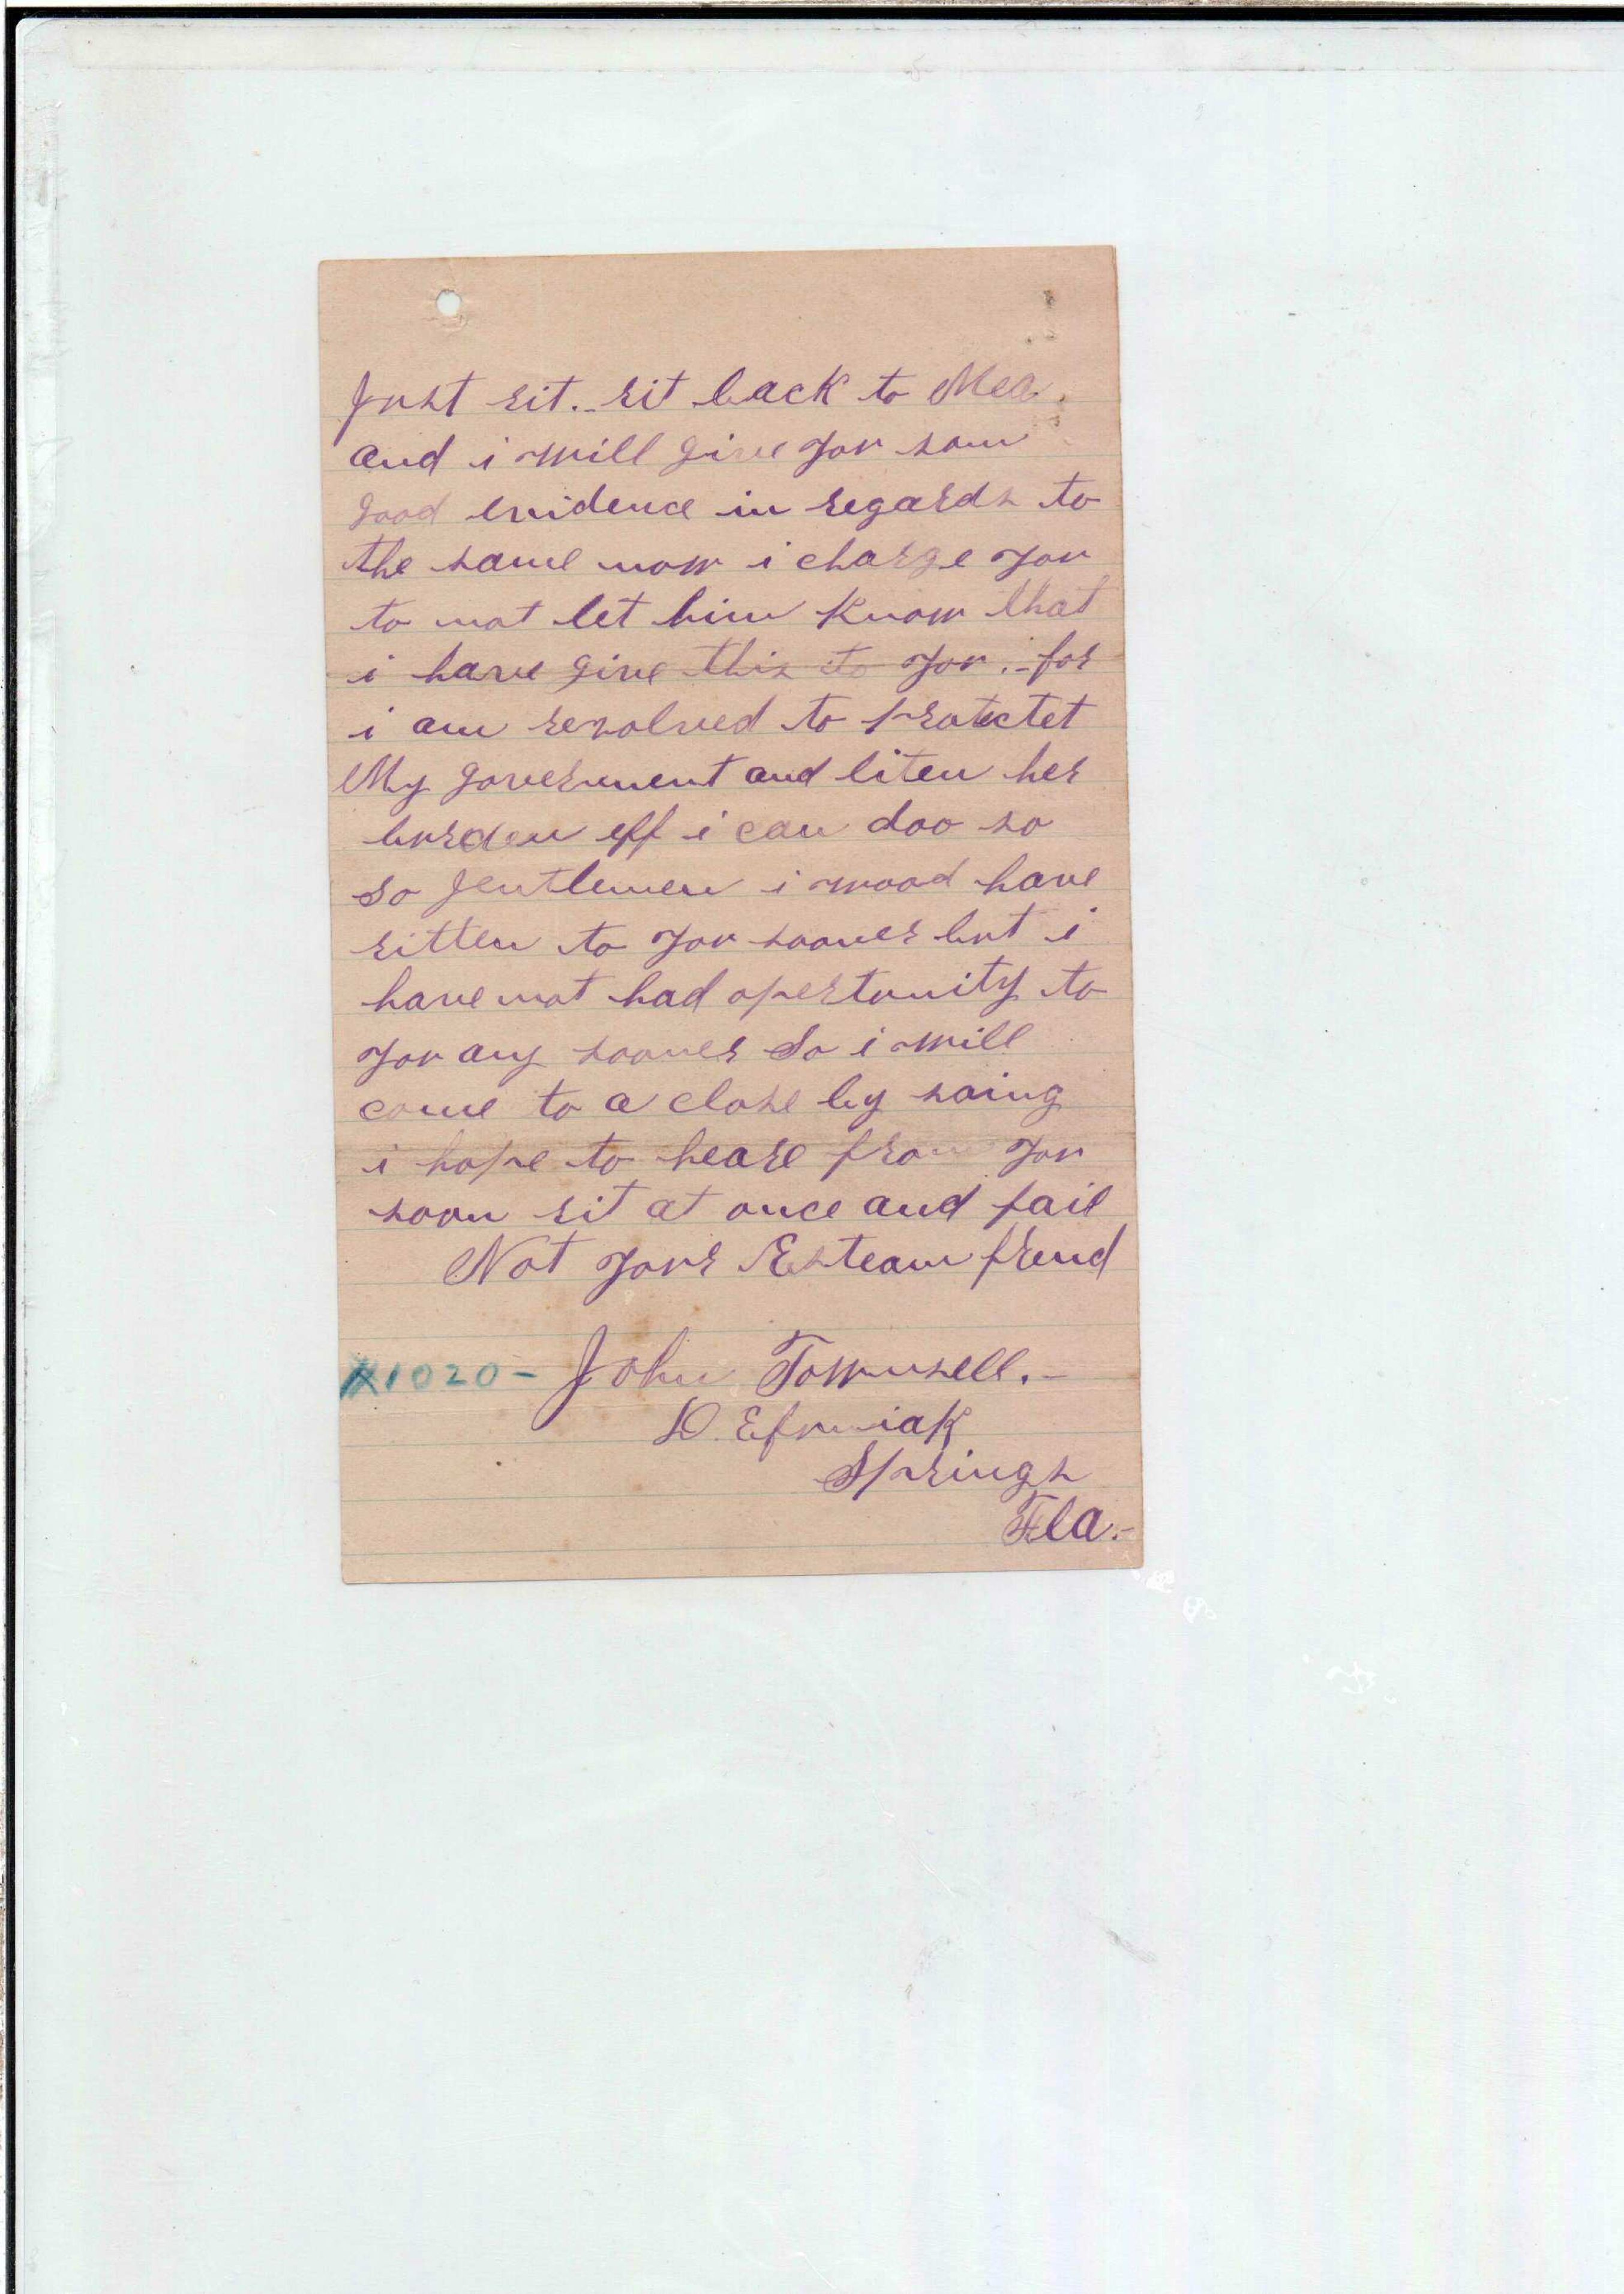 Just rit. rit back to Mea.
and i will give you som
good evidence in regards to
the same now i charge you
to not let him Know that
i have give this to you. for
i am resolved to protectet
My goverment and liten her
burden eff i can doo so
so jentlemen i wood have
ritten to you sooner but i
have not had opertunity to
you any sooner So i will
come to a close by saing
i hope to heare from you
soon rit at once and fail
Not your Esteam frend
X1020- John Townsell.-
D. Efuniak
Springs
Fla.-